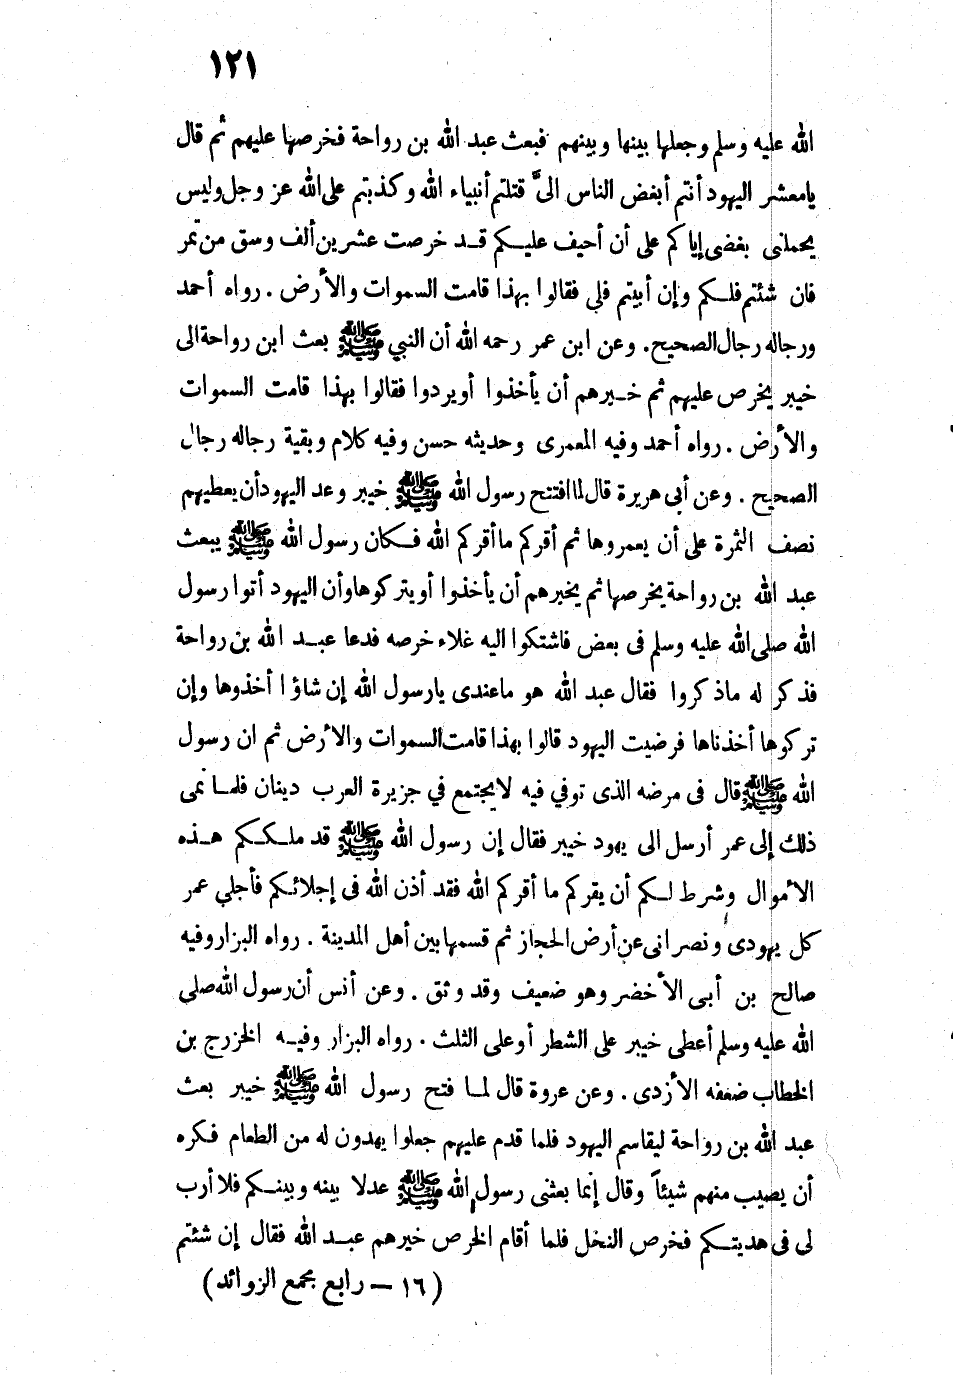 ١٢١
الله عليه وسلم وجعلها بينها وبينهم فبعث عبد الله بن رواحة فخرصها عليهم ثم قال
يامعشر اليهود أنتم أبغض الناس الىَّ قتلتم أنبياء الله وكذبتم على الله عز وجل وليس
يحملنى بغضى إياكم على أن أحيف عليكم قد خرصت عشرين ألف وسق من تمر
فان شئتم فلكم وإن أبيتم فلي فقالوا بهذا قامت السموات والأرض . رواه أحمد
ورجاله رجال الصحيح . وعن ابن عمر رحمه الله أن النبي ﷺ بعث ابن رواحة الى
خيبر يخرص عليهم ثم خيرهم أن يأخذوا أو يردوا فقالوا بهذا قامت السموات
والأرض . رواه أحمد وفيه المعمرى وحديثه حسن وفيه كلام وبقية رجاله رجال
الصحيح . وعن أبى هريرة قال لما افتتح رسول الله ﷺ خيبر وعد اليهود أن يعطيهم
نصف الثمرة على أن يعمروها ثم أقركم ما أقركم الله فكان رسول الله ﷺ يبعث
عبد الله بن رواحة يخرصها ثم يخبرهم أن يأخذوا أو يتركوها وأن اليهود أتوا رسول
الله صلى الله عليه وسلم فى بعض فاشتكوا اليه غلاء خرصه فدعا عبد الله بن رواحة
فذكر له ماذكروا فقال عبد الله هو ماعندى يارسول الله إن شاؤا أخذوها وإن
تركوها أخذناها فرضيت اليهود قالوا بهذا قامت السموات والأرض ثم ان رسول
الله ﷺ قال فى مرضه الذى توفي فيه لا يجتمع في جزيرة العرب دينان فلما نمى
ذلك إلى عمر أرسل الى يهود خيبر فقال إن رسول الله ﷺ قد ملككم هذه
الأموال وشرط لكم أن يقركم ما أقركم الله فقد أذن الله فى إجلائكم فأجلي عمر
كل يهودى ونصرانى عن أرض الحجاز ثم قسمها بين أهل المدينة . رواه البزار وفيه
صالح بن أبى الأخضر وهو ضعيف وقد وثق . وعن أنس أن رسول الله صلي
الله عليه وسلم أعطى خيبر على الشطر أو على الثلث . رواه البزار وفيه الخزرج بن
الخطاب ضعفه الأزدى . وعن عروة قال لما فتح رسول الله ﷺ خيبر بعث
عبد الله بن رواحة ليقاسم اليهود فلما قدم عليهم جعلوا يهدون له من الطعام فكره
أن يصيب منهم شيئاً وقال إنما بعثنى رسول الله ﷺ عدلا بينه وبينكم فلا أرب
لى فى هديتكم فخرص النخل فلما أقام الخرص خيرهم عبد الله فقال إن شئتم
( ١٦ — رابع مجمع الزوائد )